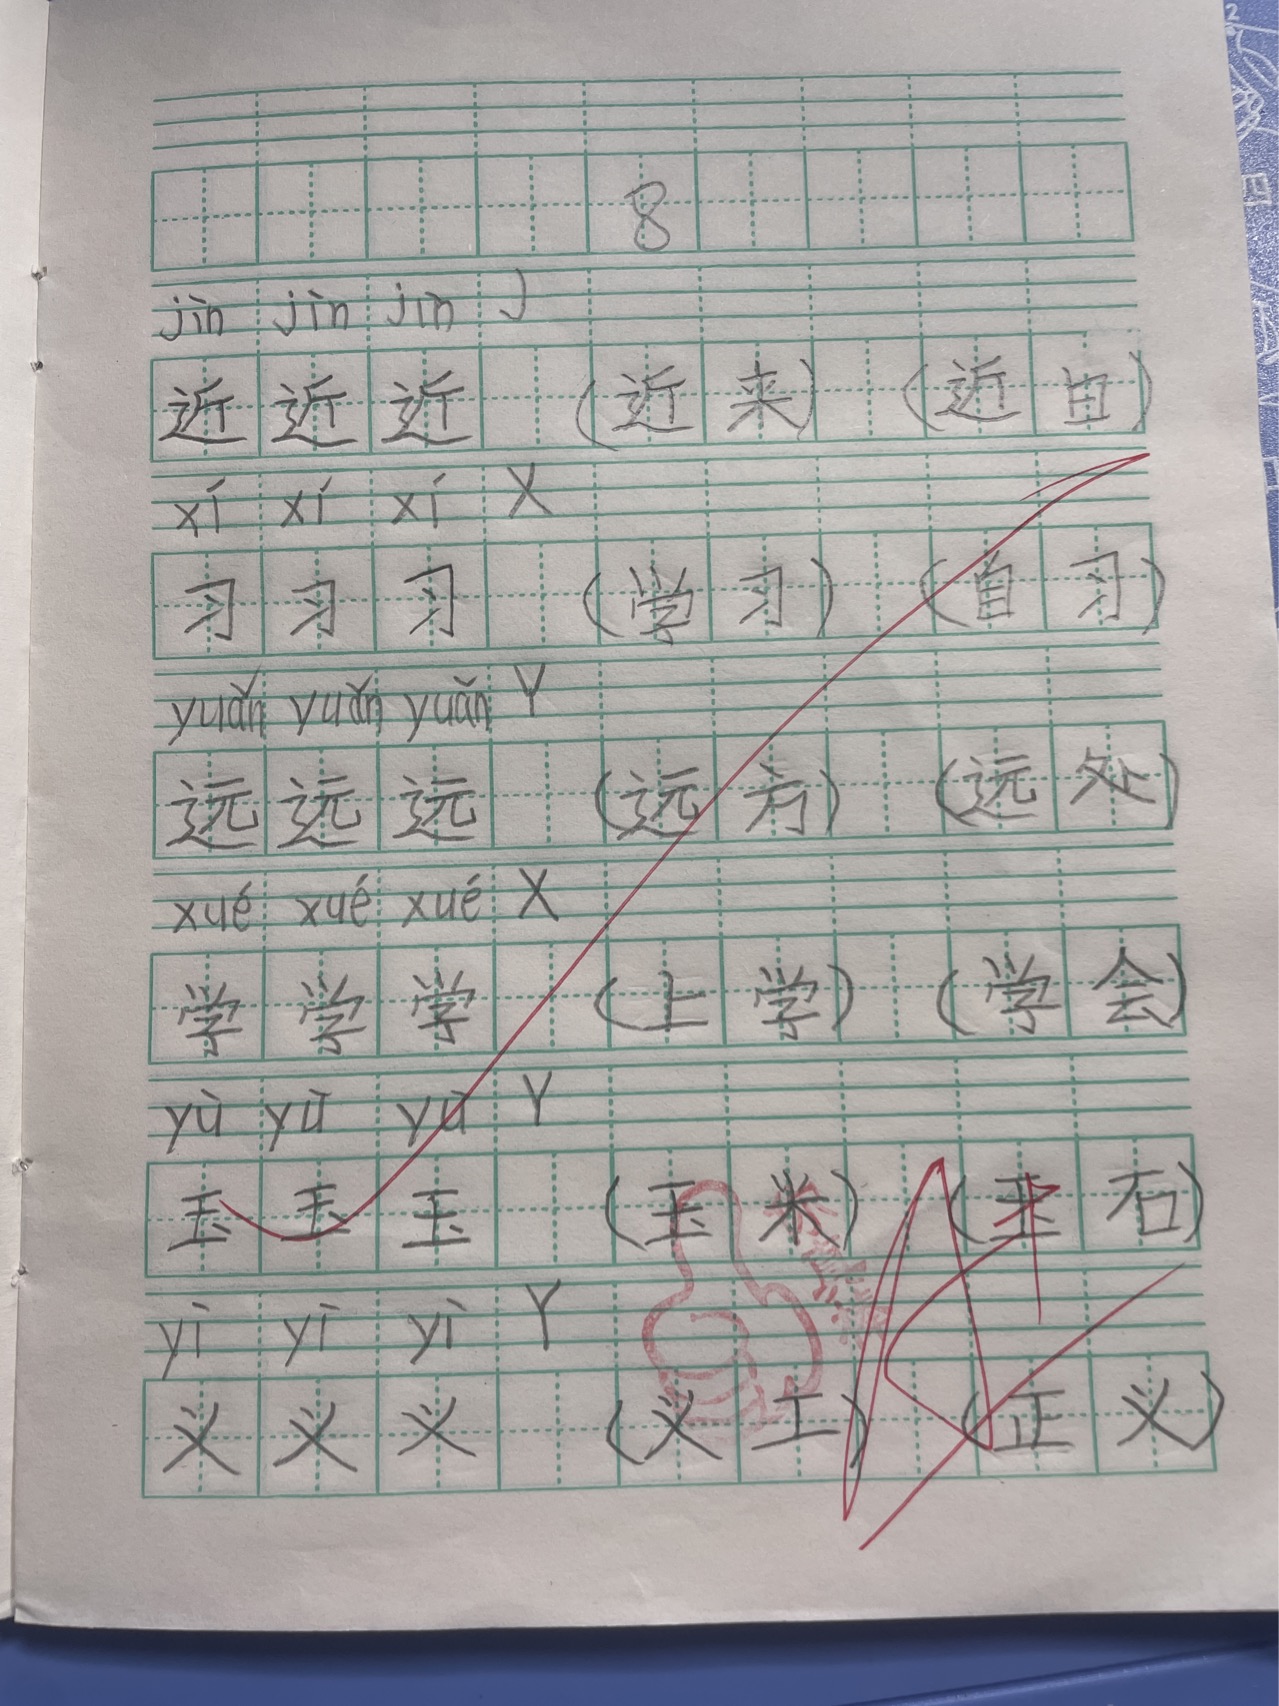 8
jìn jìn jìn J
近 近 近 (近来) (近日)
xí xí xí X
习 习 习 (学习) (自习)
yuǎn yuǎn yuǎn Y
远 远 远 (远方) (远处)
xué xué xué X
学 学 学 (上学) (学会)
yù yù yù Y
玉 玉 玉 (玉米) (玉石)
yì yì yì Y
义 义 义 (义工) (正义)